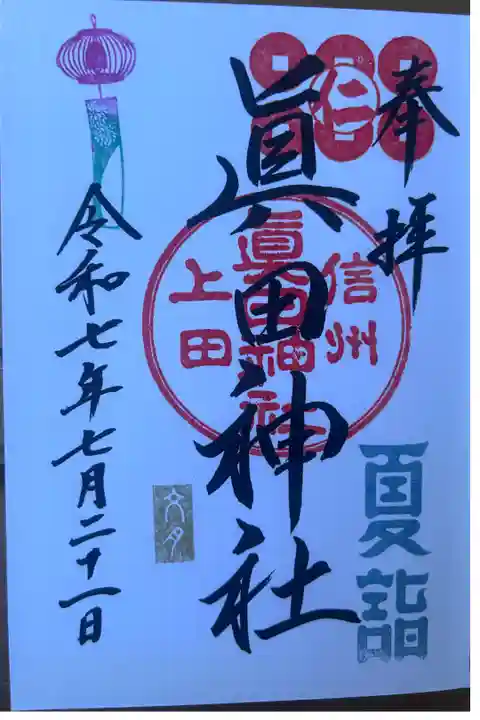 奉拝
仁
眞田神社
信州
眞田神社
上田
夏詣
文月
令和七年七月二十一日